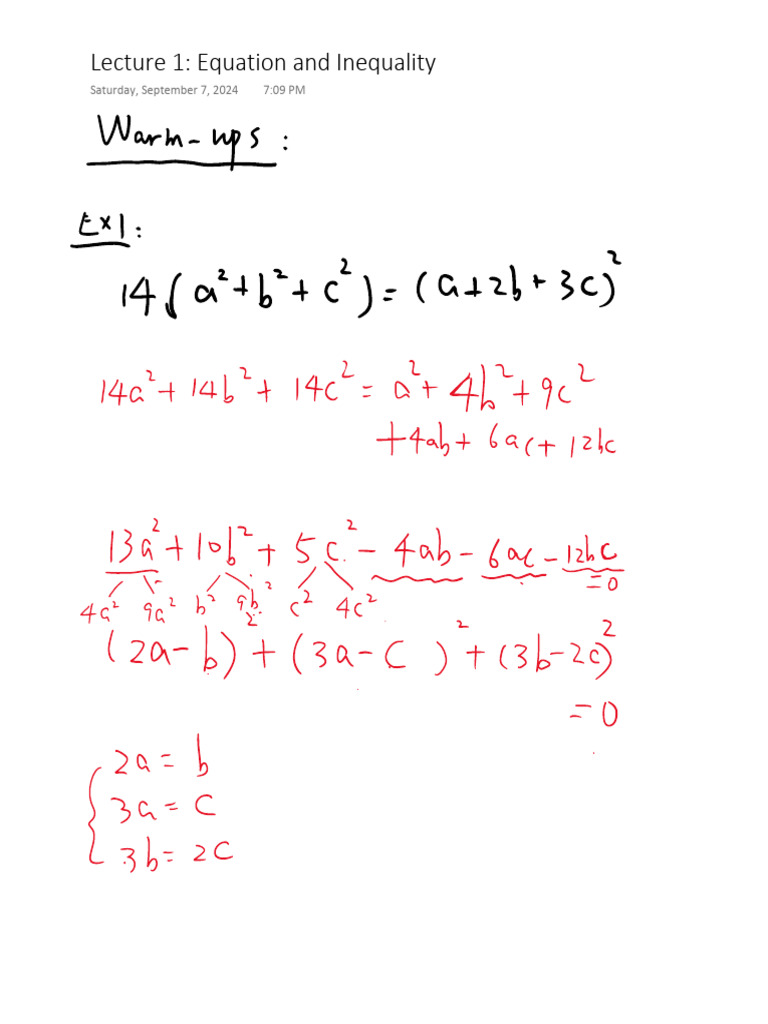 Lecture 1: Equation and Inequality
Saturday, September 7, 2024 7:09 PM
Warm-ups:
Ex1:
14(a²+b²+c²)=(a+2b+3c)²
14a²+14b²+14c²=a²+4b²+9c²
+4ab+6ac+12bc
13a²+10b²+5c²-4ab-6ac-12bc
=0
4a² 9a² b² 9b² c² 4c²
(2a-b)²+(3a-c)²+(3b-2c)²
=0
2a=b
3a=c
3b=2c